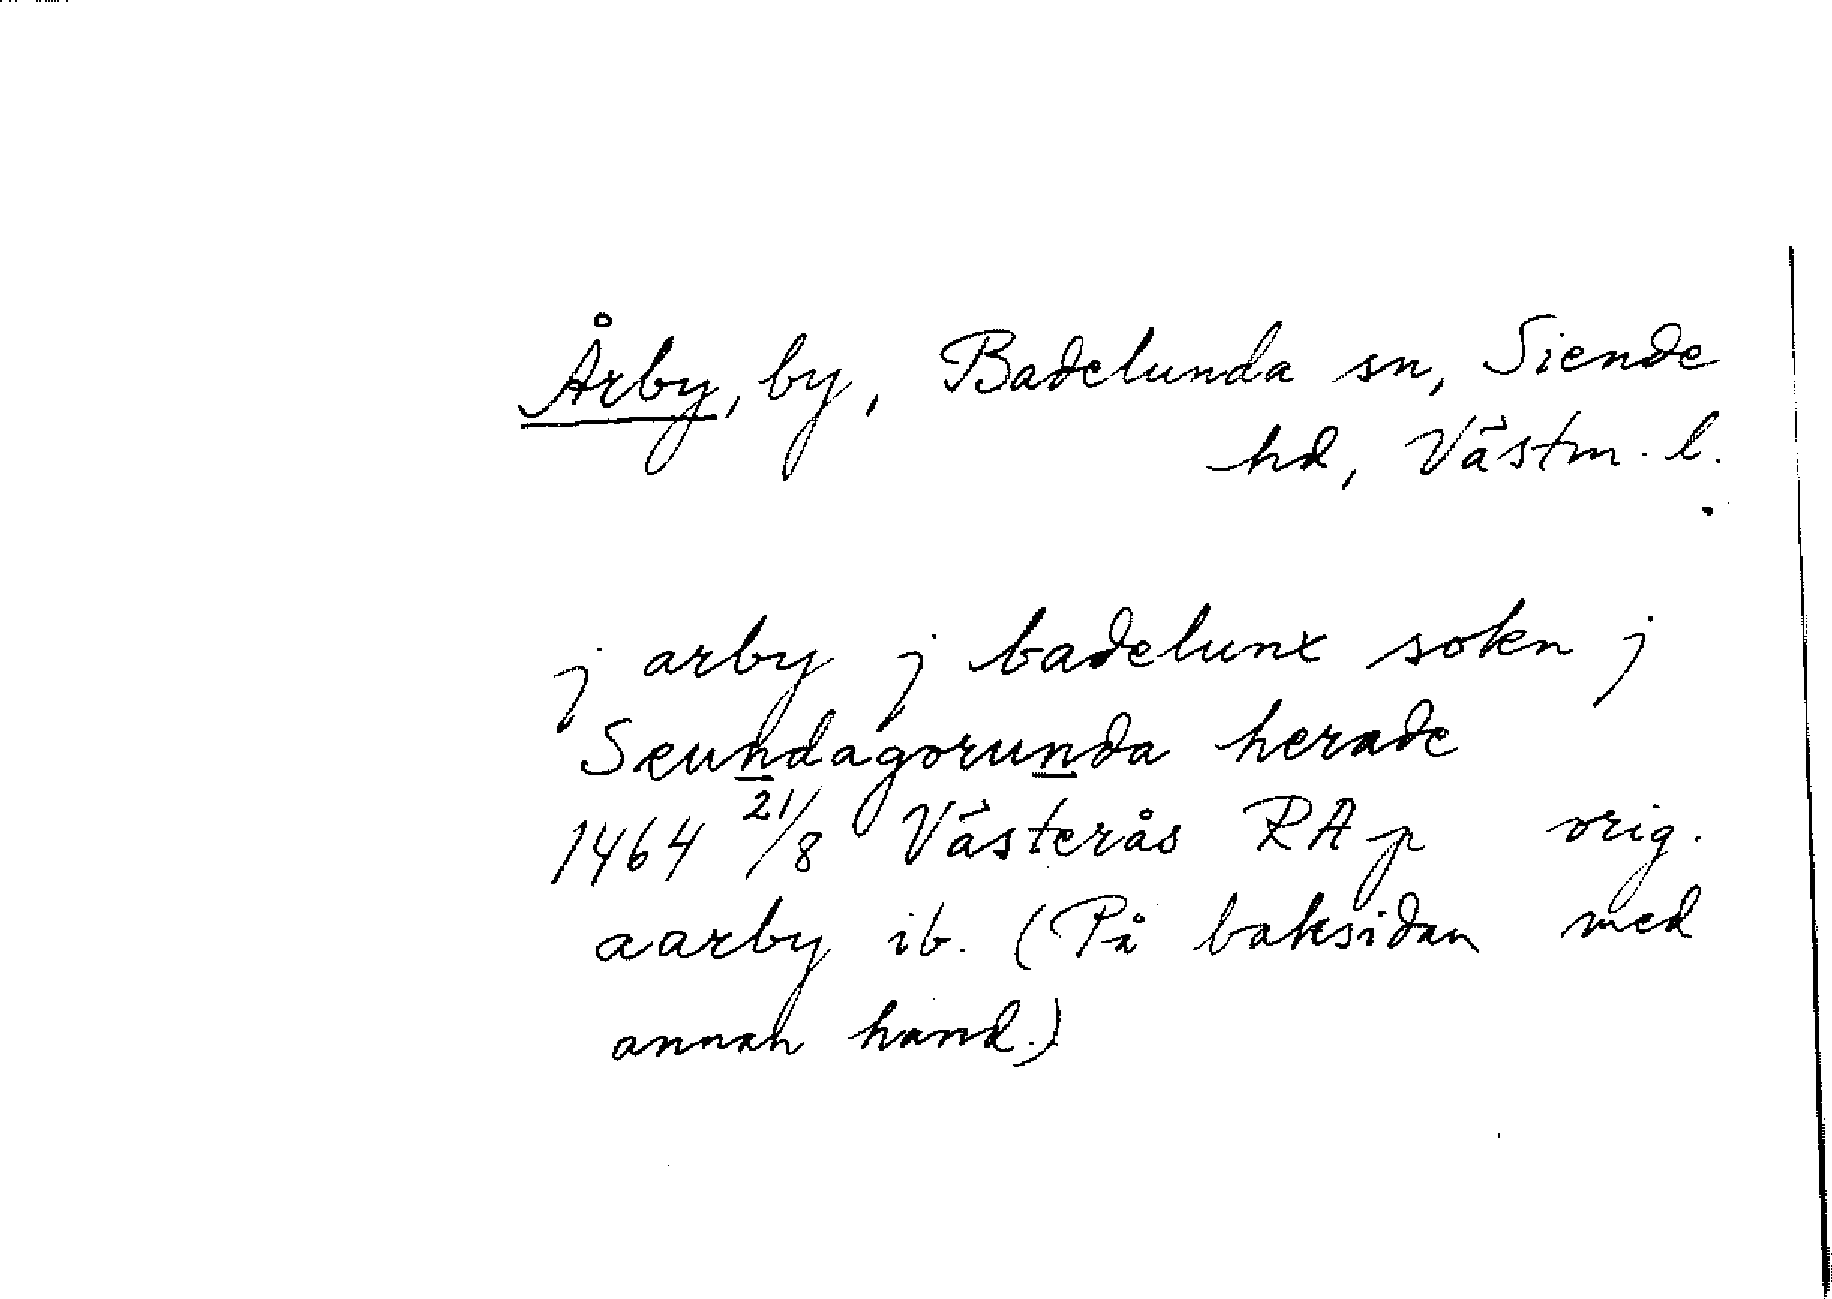 Årby, by, Badelunda sn, Siende
hd, Västm. l.
j arby j badelunx sokn j
Sæundagorunda herade
1464 21/8 Västerås RAp orig.
aarby ib. (På baksidan med
annan hand.)